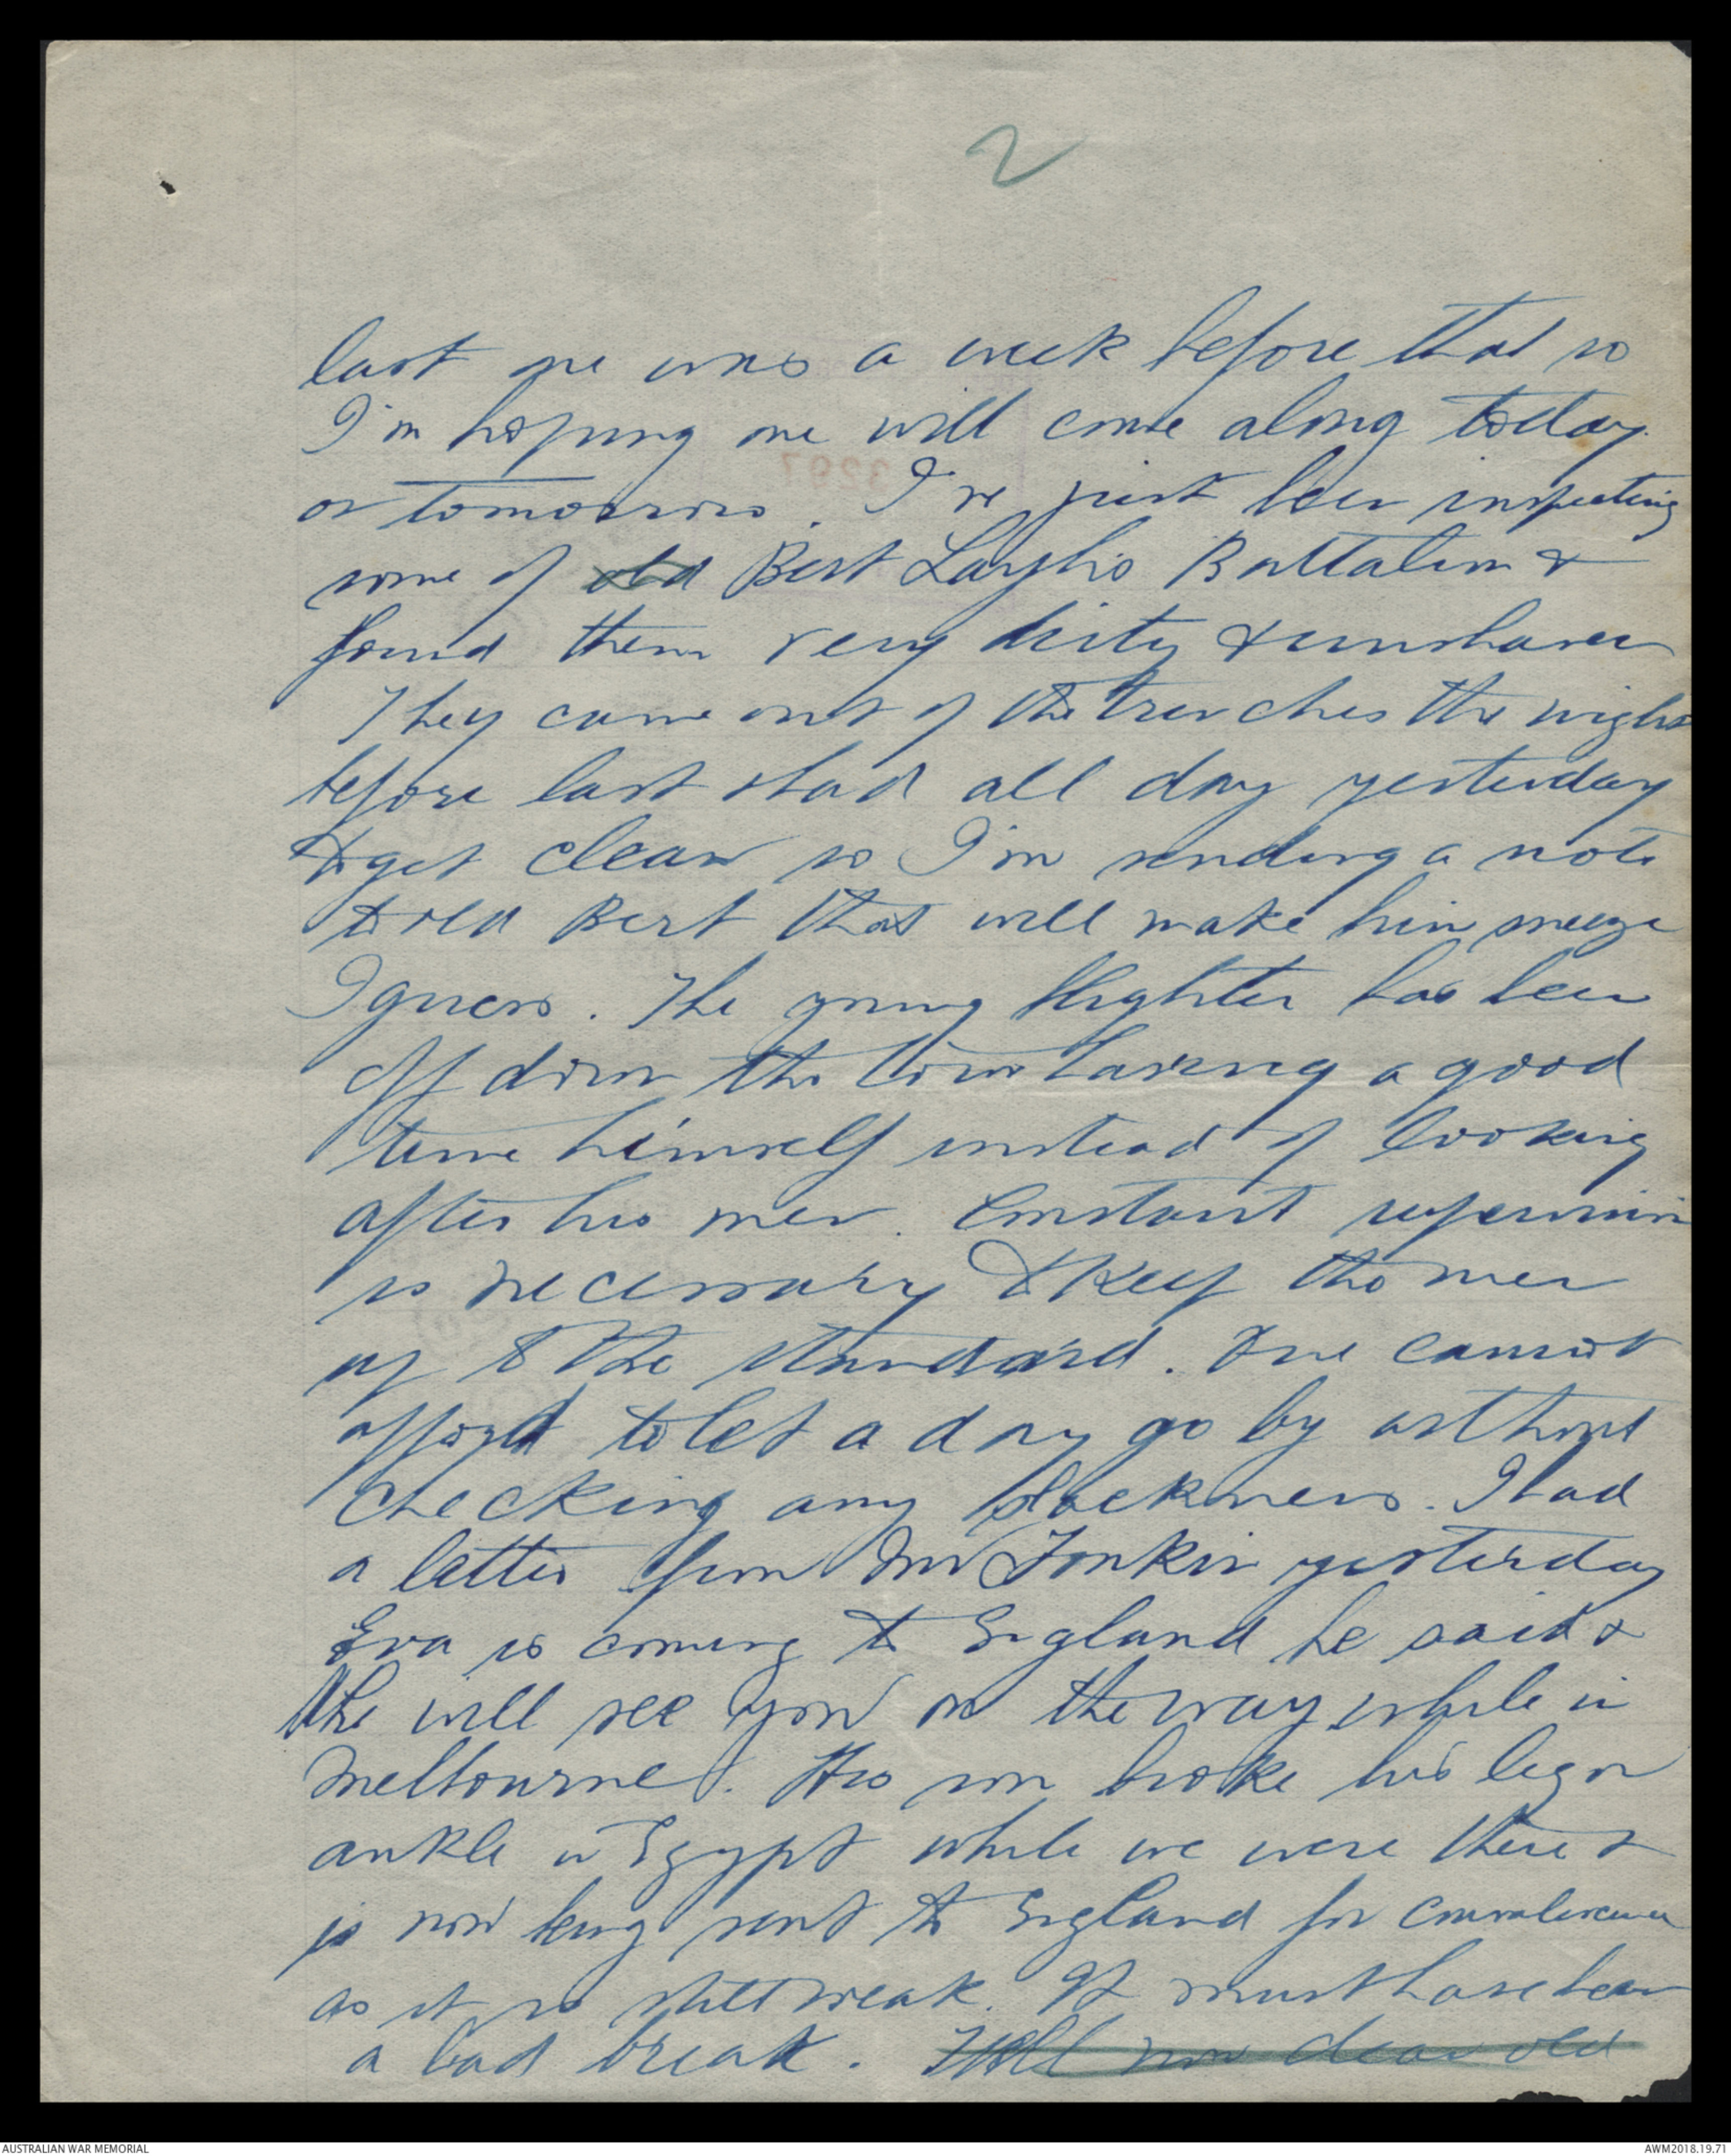 2
last one was a week before that so
I'm hoping one will come along today
or tomorrow. I've just been inspecting
some of old Bert Layh's Battalion &
found them very dirty & unshaven
They came out of the trenches the night
before last & had all day yesterday
to get clean so I'm sending a note
to old Bert that will make him sneeze
I guess. The young blighter has been
off down the line having a good
time himself instead of looking
after his men. Constant supervision
is necessary to keep the men
up to the standard. One cannot
afford to let a day go by without
checking any slackness. I had
a letter from Mr Tonkin yesterday
Eva is coming to England he said &
she will see you on the way while in
Melbourne. His son broke his leg or
ankle in Egypt while we were there &
is now being sent to England for convalescence
as it is still weak. It must have been
a bad break. Well now dear old
3297
AUSTRALIAN WAR MEMORIAL
AWM2018.19.71